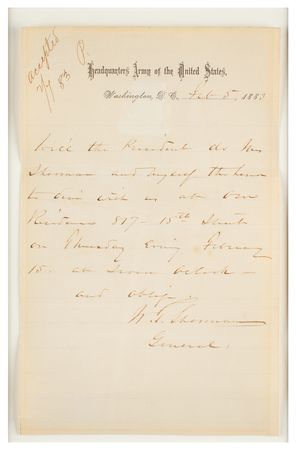 accepted
2/7 83 P.
Headquarters Army of the United States,
Washington, D.C. Feb 5, 1883
Will the President do Mrs
Sherman and myself the honor
to dine with us at our
Residence 817-15th Street
on Thursday Evening February
15, at Seven O'clock -
and oblige,
W. T. Sherman
General.